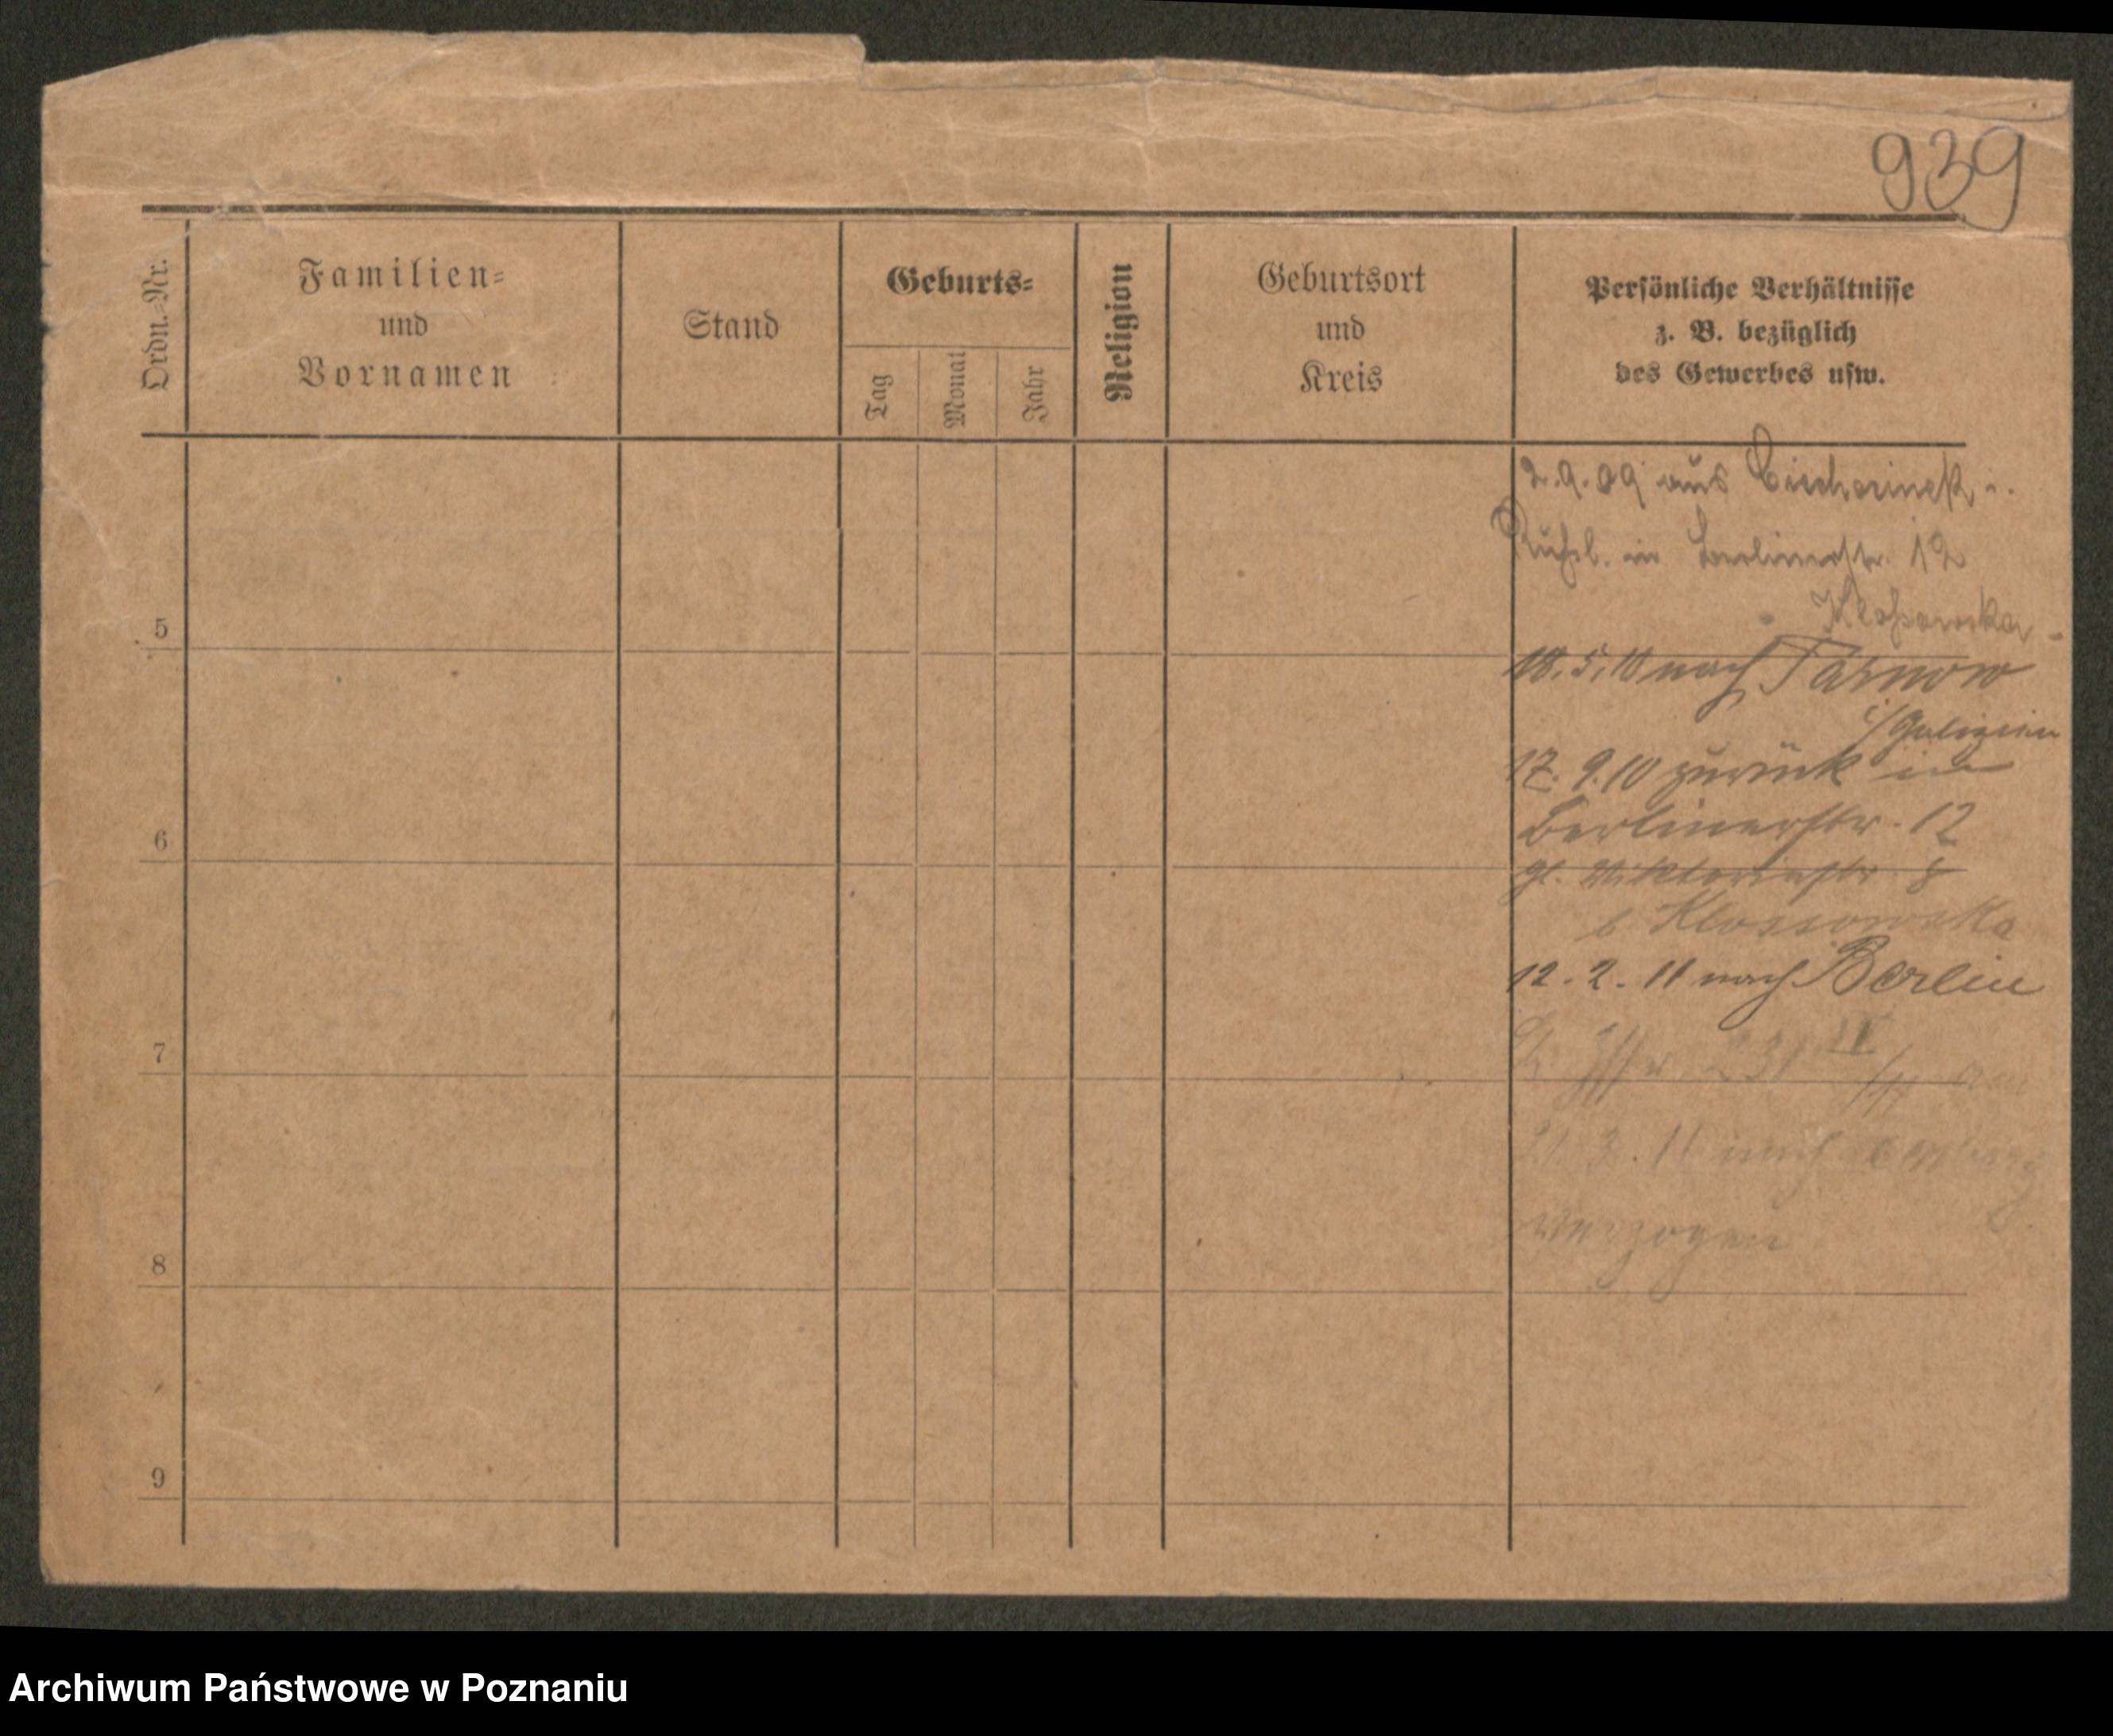 939
Ordn.-Nr.
Familien-
und
Vornamen
Stand
Geburts-
Tag
Monat
Jahr
Religion
Geburtsort
und
Kreis
Persönliche Verhältnisse
z. B. bezüglich
des Gewerbes usw.
2.9.09 aus
in Berlinerstr. 12
5
18.5.10 nach Tarnow
i/Galizien
17.9.10 zurück in
Berlinerstr. 12
6
Viktoriastr 8
b Klossowska
12.2.11 nach Berlin
7
3.11 nach
verzogen
8
9
Archiwum Państwowe w Poznaniu